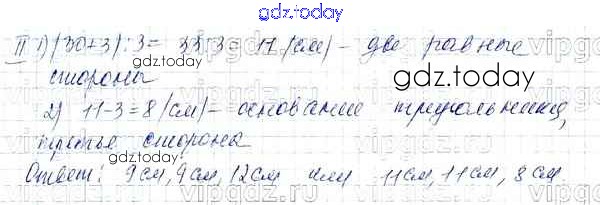 gdz.today
II 1) (30+3):3= 33:3= 11 (см) – две равные
стороны
gdz.today
2) 11-3=8 (см) – основание треугольника,
третье сторона
gdz.today
Ответ: 9см, 9см, 12см или 11см, 11см, 8см.